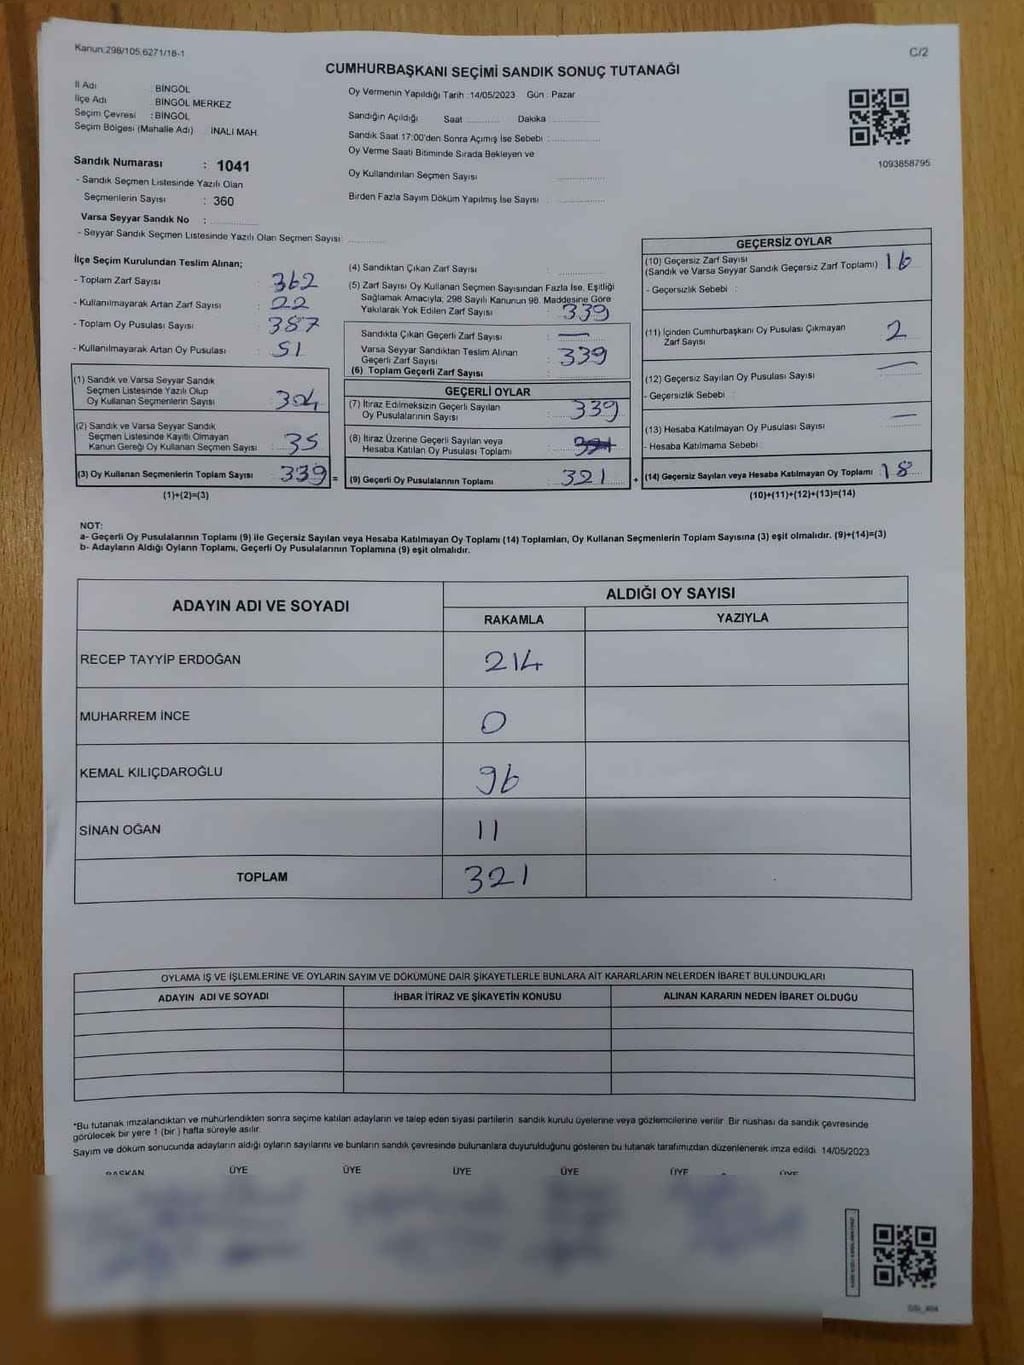 Kanun:298/105,6271/18-1
C/2
CUMHURBAŞKANI SEÇİMİ SANDIK SONUÇ TUTANAĞI
İl Adı : BİNGÖL
İlçe Adı BİNGÖL MERKEZ
Seçim Çevresi : BİNGÖL
Seçim Bölgesi (Mahalle Adı) İNALI MAH.
Sandık Numarası : 1041
- Sandık Seçmen Listesinde Yazılı Olan
Seçmenlerin Sayısı : 360
Varsa Seyyar Sandık No :
- Seyyar Sandık Seçmen Listesinde Yazılı Olan Seçmen Sayısı
Oy Vermenin Yapıldığı Tarih :14/05/2023 Gün : Pazar
Sandığın Açıldığı Saat Dakika
Sandık Saat 17:00'den Sonra Açımış İse Sebebi :
Oy Verme Saati Bitiminde Sırada Bekleyen ve
Oy Kullandırılan Seçmen Sayısı
Birden Fazla Sayım Döküm Yapılmış İse Sayısı
1093858795
İlçe Seçim Kurulundan Teslim Alınan;
- Toplam Zarf Sayısı : 362
- Kullanılmayarak Artan Zarf Sayısı : 22
- Toplam Oy Pusulası Sayısı : 387
- Kullanılmayarak Artan Oy Pusulası : 51
(1) Sandık ve Varsa Seyyar Sandık
Seçmen Listesinde Yazılı Olup
Oy Kullanan Seçmenlerin Sayısı : 304
(2) Sandık ve Varsa Seyyar Sandık
Seçmen Listesinde Kayıtlı Olmayan
Kanun Gereği Oy Kullanan Seçmen Sayısı : 35
(3) Oy Kullanan Seçmenlerin Toplam Sayısı : 339 =
(1)+(2)=(3)
(4) Sandıktan Çıkan Zarf Sayısı :
(5) Zarf Sayısı Oy Kullanan Seçmen Sayısından Fazla İse, Eşitliği
Sağlamak Amacıyla, 298 Sayılı Kanunun 98. Maddesine Göre
Yakılarak Yok Edilen Zarf Sayısı : 339
Sandıkta Çıkan Geçerli Zarf Sayısı : —
Varsa Seyyar Sandıktan Teslim Alınan
Geçerli Zarf Sayısı : 339
(6) Toplam Geçerli Zarf Sayısı :
GEÇERLİ OYLAR
(7) İtiraz Edilmeksizin Geçerli Sayılan
Oy Pusulalarının Sayısı : 339
(8) İtiraz Üzerine Geçerli Sayılan veya
Hesaba Katılan Oy Pusulası Toplamı : 321
(9) Geçerli Oy Pusulalarının Toplamı : 321 +
GEÇERSİZ OYLAR
(10) Geçersiz Zarf Sayısı
(Sandık ve Varsa Seyyar Sandık Geçersiz Zarf Toplamı) : 16
- Geçersizlik Sebebi :
(11) İçinden Cumhurbaşkanı Oy Pusulası Çıkmayan
Zarf Sayısı 2
(12) Geçersiz Sayılan Oy Pusulası Sayısı : —
- Geçersizlik Sebebi :
(13) Hesaba Katılmayan Oy Pusulası Sayısı : —
- Hesaba Katılmama Sebebi :
(14) Geçersiz Sayılan veya Hesaba Katılmayan Oy Toplamı : 18
(10)+(11)+(12)+(13)=(14)
NOT:
a- Geçerli Oy Pusulalarının Toplamı (9) ile Geçersiz Sayılan veya Hesaba Katılmayan Oy Toplamı (14) Toplamları, Oy Kullanan Seçmenlerin Toplam Sayısına (3) eşit olmalıdır. (9)+(14)=(3)
b- Adayların Aldığı Oyların Toplamı, Geçerli Oy Pusulalarının Toplamına (9) eşit olmalıdır.
ADAYIN ADI VE SOYADI
ALDIĞI OY SAYISI
RAKAMLA YAZIYLA
RECEP TAYYİP ERDOĞAN 214
MUHARREM İNCE 0
KEMAL KILIÇDAROĞLU 96
SİNAN OĞAN 11
TOPLAM 321
OYLAMA İŞ VE İŞLEMLERİNE VE OYLARIN SAYIM VE DÖKÜMÜNE DAİR ŞİKAYETLERLE BUNLARA AİT KARARLARIN NELERDEN İBARET BULUNDUKLARI
ADAYIN ADI VE SOYADI İHBAR İTİRAZ VE ŞİKAYETİN KONUSU ALINAN KARARIN NEDEN İBARET OLDUĞU
*Bu tutanak imzalandıktan ve mühürlendikten sonra seçime katılan adayların ve talep eden siyasi partilerin sandık kurulu üyelerine veya gözlemcilerine verilir. Bir nushası da sandık çevresinde
görülecek bir yere 1 (bir ) hafta süreyle asılır.
Sayım ve döküm sonucunda adayların aldığı oyların sayılarını ve bunların sandık çevresinde bulunanlara duyurulduğunu gösteren bu tutanak tarafımızdan düzenlenerek imza edildi. 14/05/2023
BAŞKAN ÜYE ÜYE ÜYE ÜYE ÜYE ÜYE